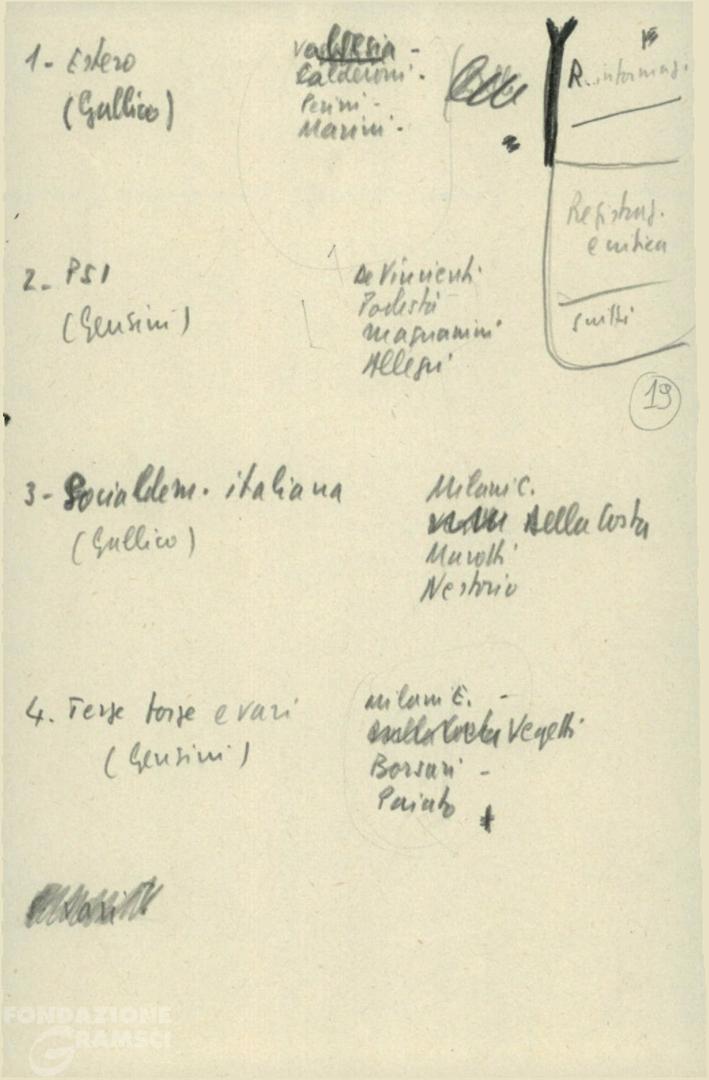 1 - Estero
(Gallico)
Calderoni -
Perini -
Marini -
R. informaz.
Registraz.
e critica
scritti
19
2 - PSI
(Gensini)
De Vincenti
Podestà
Magnanini
Allegri
3 - Socialdem. italiana
(Gallico)
Milani C.
Della Costa
Marotti
Nestorio
4. Terze forze e vari
(Gensini)
Milani E. -
Vegetti
Borsari -
Paiato
FONDAZIONE
GRAMSCI